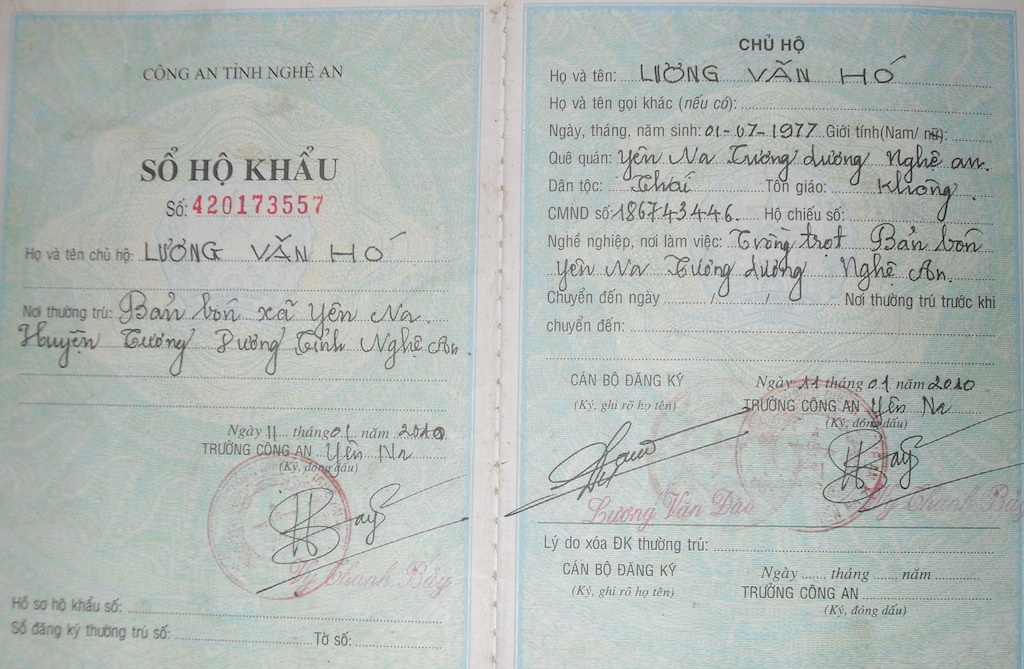 CÔNG AN TỈNH NGHỆ AN
SỔ HỘ KHẨU
Số: 420173557
Họ và tên chủ hộ: LƯƠNG VĂN HÓ
Nơi thường trú: Bản bón xã Yên Na.
Huyện Tương Dương Tỉnh Nghệ An.
Ngày 11 tháng 01 năm 2010
TRƯỞNG CÔNG AN Yên Na
(Ký, đóng dấu)
Vy Thanh Bảy
Hồ sơ hộ khẩu số:
Sổ đăng ký thường trú số: Tờ số:
CHỦ HỘ
Họ và tên: LƯƠNG VĂN HÓ
Họ và tên gọi khác (nếu có):
Ngày, tháng, năm sinh: 01-07-1977 Giới tính(Nam/ nữ):
Quê quán: Yên Na Tương dương Nghệ an.
Dân tộc: Thái Tôn giáo: Không
CMND số: 186743446. Hộ chiếu số:
Nghề nghiệp, nơi làm việc: Trồng trọt Bản bón
Yên Na Tương dương Nghệ An.
Chuyển đến ngày / / Nơi thường trú trước khi
chuyển đến:
CÁN BỘ ĐĂNG KÝ Ngày 11 tháng 01 năm 2010
(Ký, ghi rõ họ tên) TRƯỞNG CÔNG AN Yên Na
(Ký, đóng dấu)
Lương Văn Dào Vy Thanh Bảy
Lý do xóa ĐK thường trú:
CÁN BỘ ĐĂNG KÝ Ngày tháng năm
(Ký, ghi rõ họ tên) TRƯỞNG CÔNG AN
(Ký, đóng dấu)